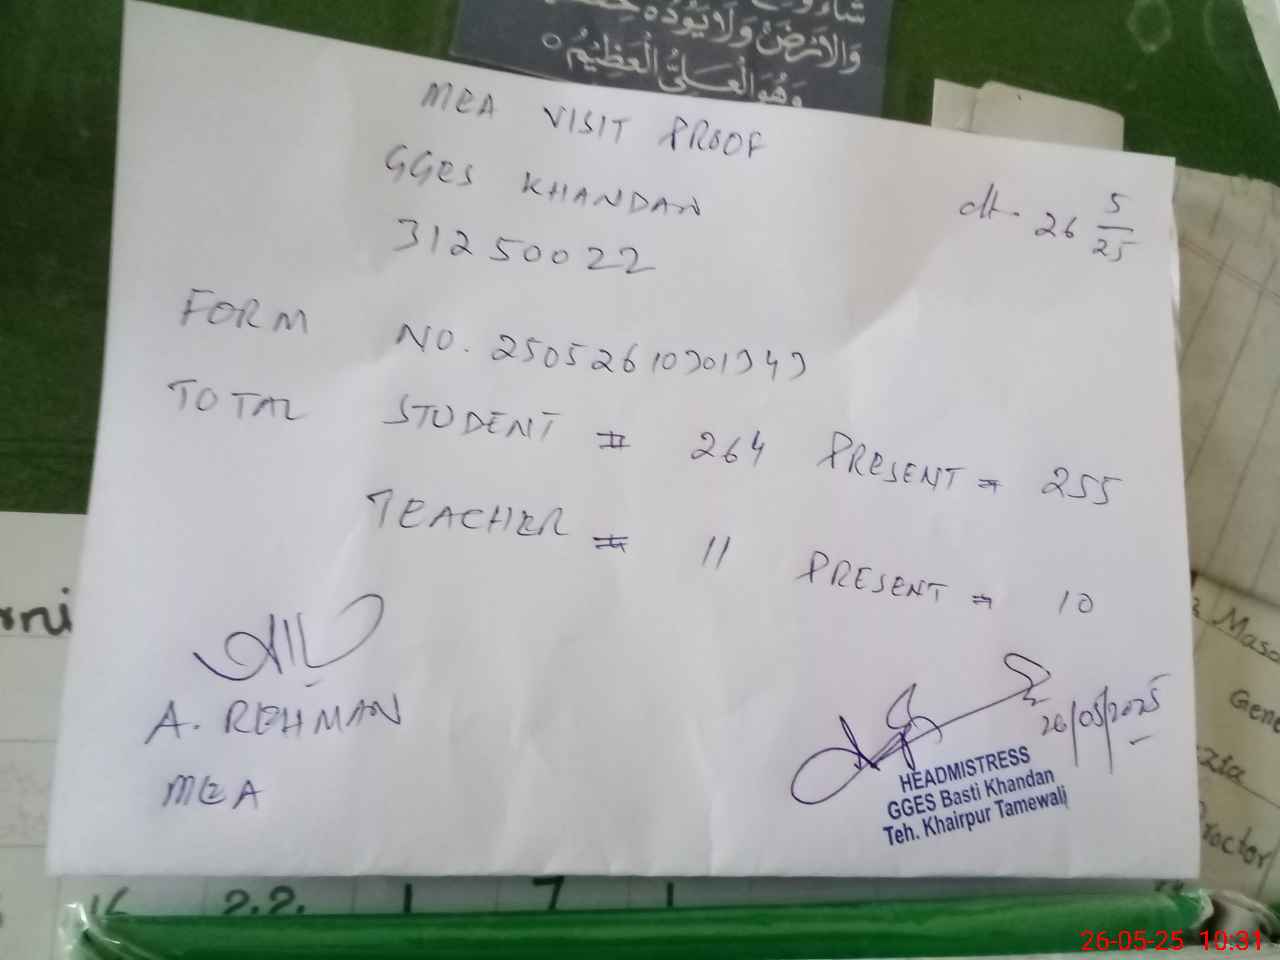 وَالْاَرْضَ وَلَا يَـُٔوْدُهٗ
وَهُوَ الْعَلِيُّ الْعَظِيْمُ
MEA VISIT PROOF
GGES KHANDAN
31250022
dt. 26 5/25
FORM NO. 25052610301343
TOTAL STUDENT = 264 PRESENT = 255
TEACHER = 11 PRESENT = 10
A. REHMAN
MEA
26/05/2025
HEADMISTRESS
GGES Basti Khandan
Teh. Khairpur Tamewali
rni
Masо
Gene
zia
Proctor
16 2.2. 1 7 1
26-05-25 10:31